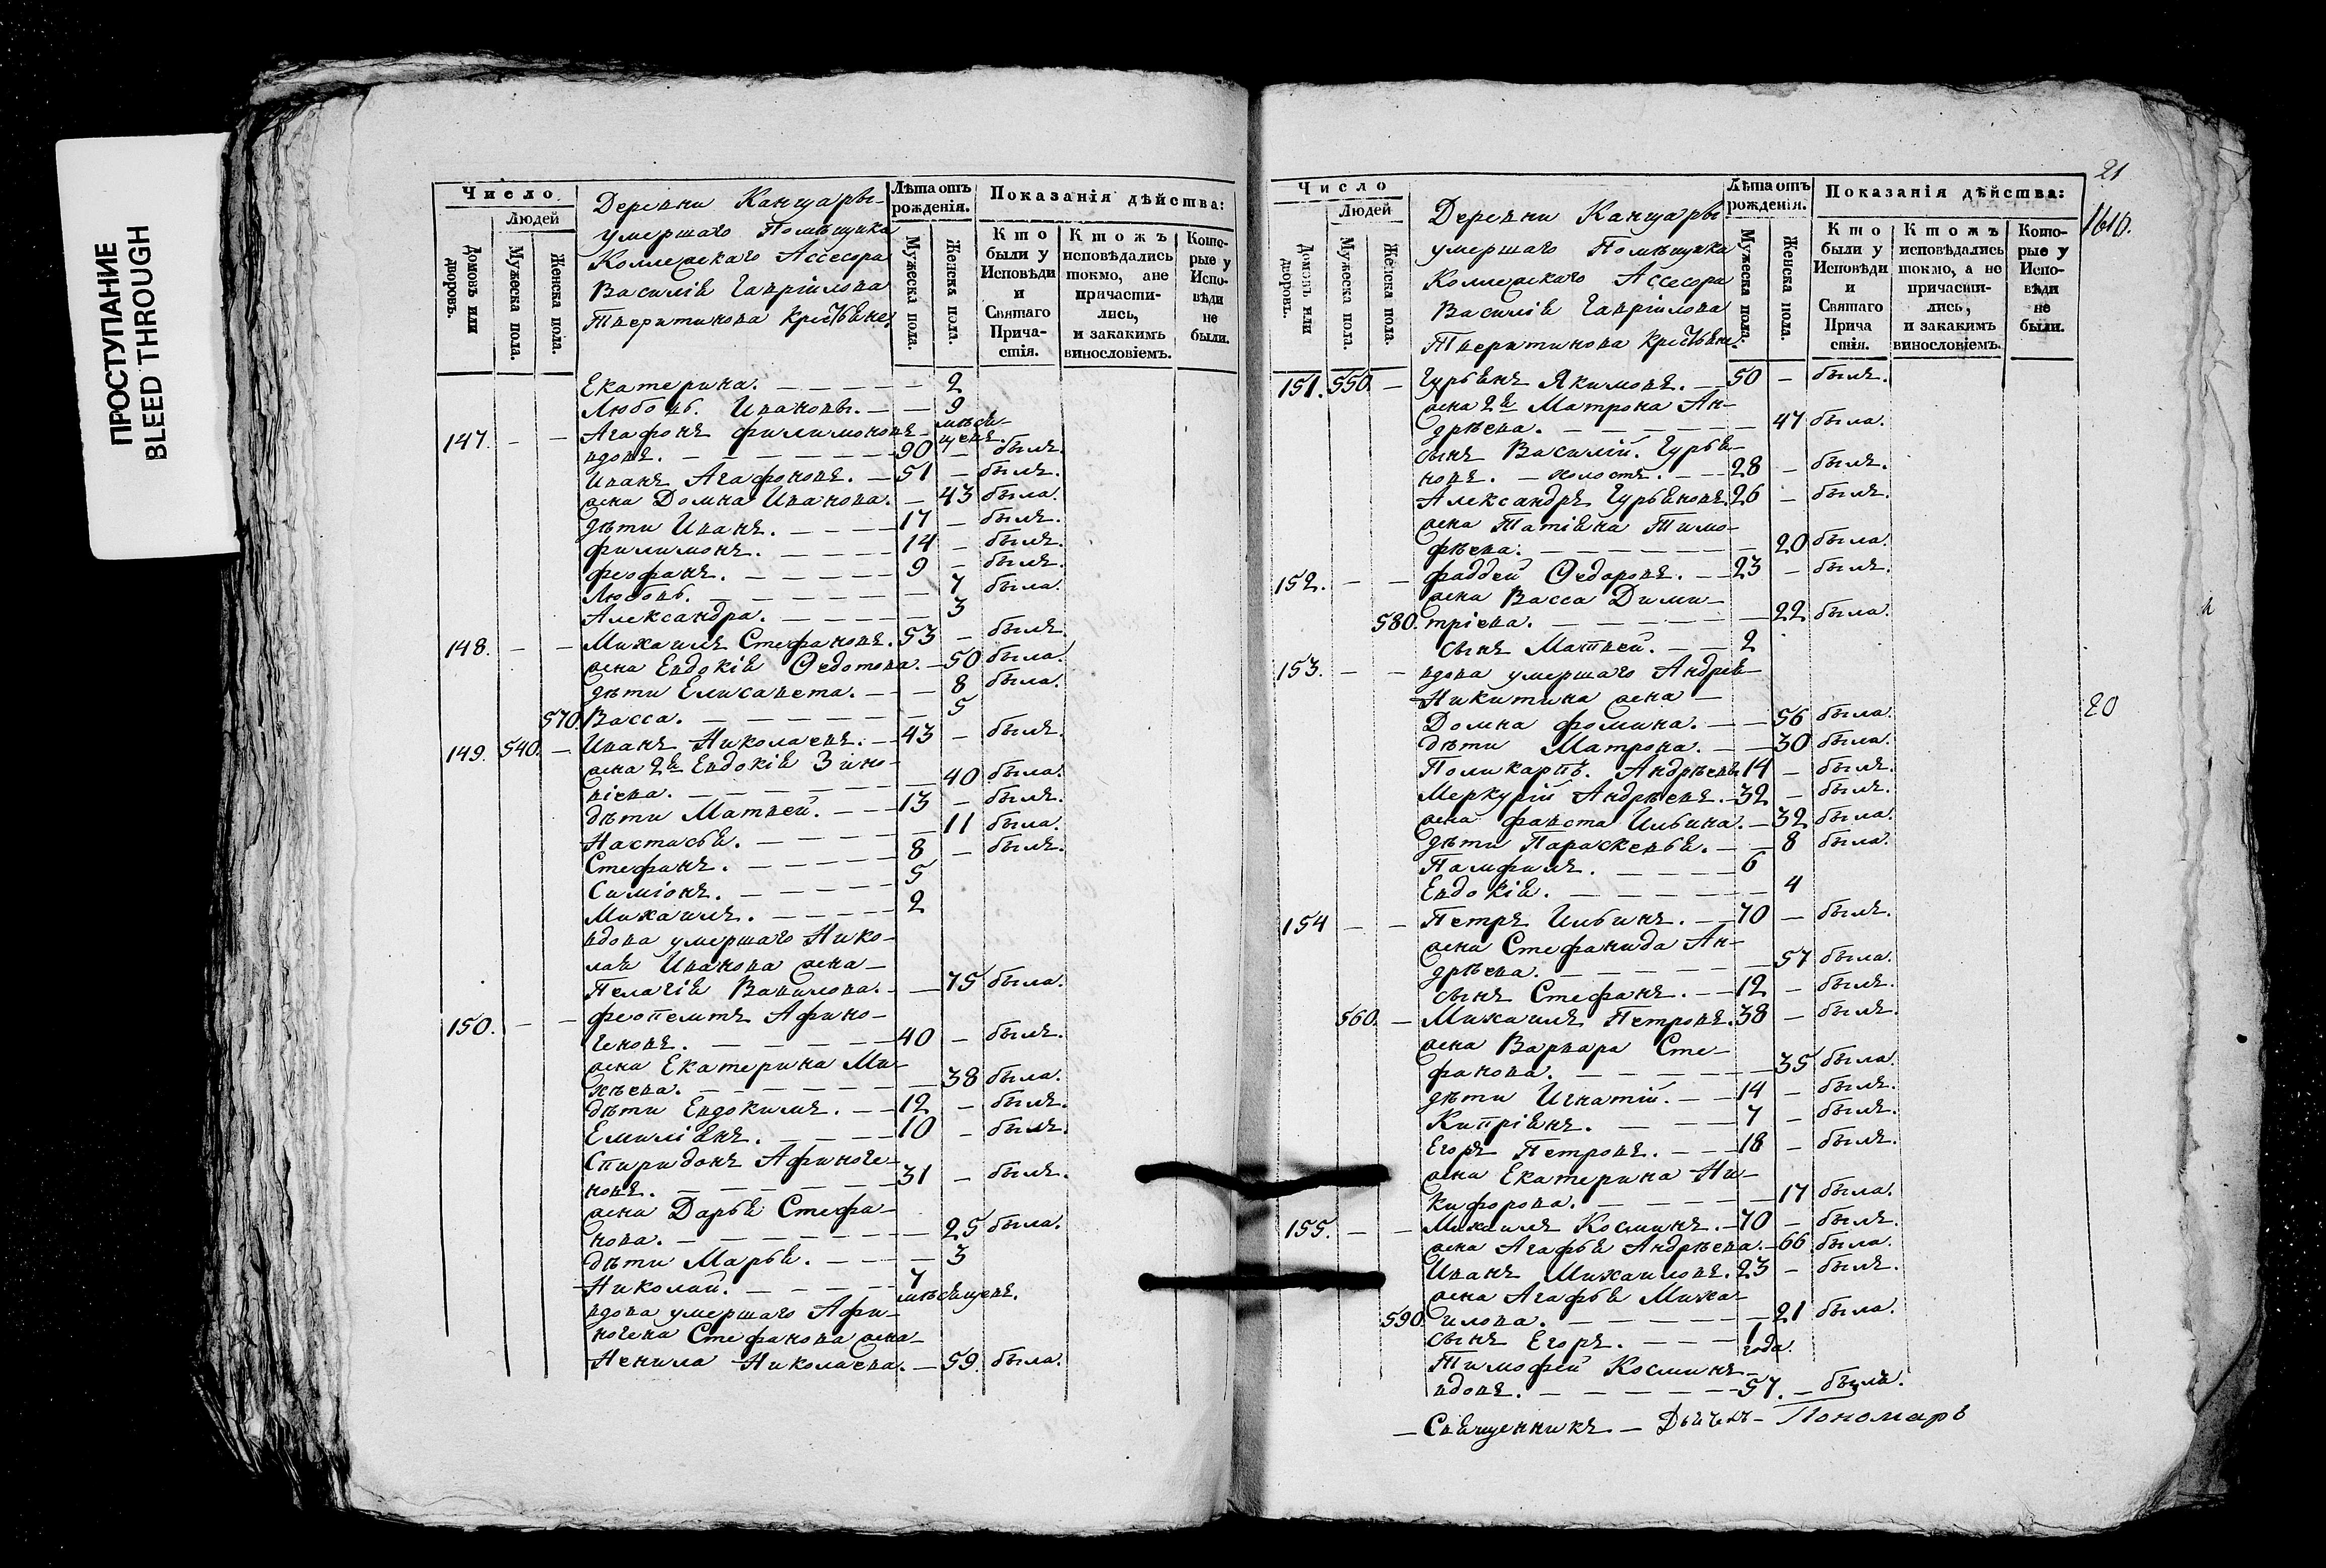 ПРОСТУПАНИЕ
BLEED THROUGH
Число
Людей
Домовъ или дворовъ.
Мужеска пола.
Женска пола.
Деревни Канчары
умершаго Помѣщика
Коллежскаго Ассесора
Василія Гавріилова
Тверитинова крестьяне
Лѣта отъ рожденія.
Мужеска пола.
Женска пола.
Показанія дѣйства:
Кто были у Исповѣди и Святаго Прича-стія.
Ктожъ исповѣдались токмо, а не причасти-лись, и закакимъ винословіемъ.
Кото-рые у Испо-вѣди не были.
Екатерина. — 2
Любовь. Ивановы. — — 9
мѣся-
147. — — Агафонъ Филимоновъ — цевъ.
вдовъ. — 90 — былъ.
Иванъ Агафоновъ. — 51 — былъ.
жена Домна Иванова. — 43 была.
дѣти Иванъ. — 17 — былъ.
Филимонъ. — 14 — былъ.
Феофанъ. — 9 — былъ.
Любовь. — 7 была.
Александра. — 3
148. — — Михаилъ Стефановъ. 53 — былъ.
жена Евдокія Федотова. — 50 была.
дѣти Елисавета. — — 8 была.
570. Васса. — 5
149. 540. — Иванъ Николаевъ. — 43 — былъ.
жена 2я Евдокія Зино-
віева. — 40 была.
дѣти Матвей. — 13 — былъ.
Настасья. — 11 была.
Стефанъ. — 8 — былъ.
Симіонъ. — 5
Михаилъ. — 2
вдова умершаго Нико-
лая Иванова жена —
Пелагія Вавилова. — 75 была.
150. — — Феопемтъ Афино-
геновъ. — 40 — былъ.
жена Екатерина Ми-
хѣева. — 38 была.
дѣти Евдокимъ. — 12 — былъ.
Емиліянъ. — 10 — былъ.
Спиридонъ Афиноге-
новъ. — 31 — былъ.
жена Дарья Стефа-
нова. — 25 была.
дѣти Марья. — 3
Николай. — 7
мѣсяцевъ.
вдова умершаго Афи-
ногена Стефанова жена
Ненила Николаева. — 59. была.
21
1616.
Число
Людей
Домовъ или дворовъ.
Мужеска пола.
Женска пола.
Деревни Канчары
умершаго Помѣщика
Коллежскаго Ассесора
Василія Гавріилова
Тверитинова крестьяне.
Лѣта отъ рожденія.
Мужеска пола.
Женска пола.
Показанія дѣйства:
Кто были у Исповѣди и Святаго Прича стія.
Ктожъ исповѣдались токмо, а не причасти-лись, и закакимъ винословіемъ.
Кото-рые у Испо-вѣди не были.
151. 550. — Гурьянъ Якимовъ. — 50 — былъ.
жена 2я Матрона Ан-
дрѣева. — 47 была.
сынъ Василій. Гурья-
новъ. — холостъ. — 28 — былъ.
Александръ Гурьяновъ. 26 — былъ.
жена Татіяна Тимо-
фѣева. — 20 была.
152. — — Фаддей Федаровъ. — 23 — былъ.
жена Васса Дими-
580. тріева. — 22 была.
сынъ Матвей. — 2
153. — — вдова умершаго Андрея
Никитина жена —
Домна Фомина. — 56 была.
дѣти Матрона. — 30 была.
Поликарпъ. Андрѣевы 14 — былъ.
Меркурій Андрѣевъ. 32 — былъ.
жена Фавста Ильина. — 32 была.
дѣти Параскевья. — 8 была.
Памфилъ. — 6
Евдокія. — 4
154 — — Петръ Ильинъ. — 70 — былъ.
жена Стефанида Ан-
дрѣева. — 57 была.
сынъ Стефанъ. — 12 — былъ.
560. — Михаилъ Петровъ. 38 — былъ.
жена Варвара Сте-
фанова. — 35 была.
дѣти Игнатій. — 14 — былъ.
Кипріянъ. — 7 — былъ.
Егоръ Петровъ. — 18 — былъ.
жена Екатерина Ни-
кифорова. — 17 была.
155. — — Михаилъ Косминъ. — 70 — былъ.
жена Агафья Андрѣева. — 66 была.
Иванъ Михаиловъ. 23 — былъ.
жена Агафья Миха-
590. илова. — 21 была.
сынъ Егоръ. — 1
года.
Тимофей Косминъ
вдовъ. — 57. — былъ.
20
— Священникъ. — Дьячекъ — Пономарь